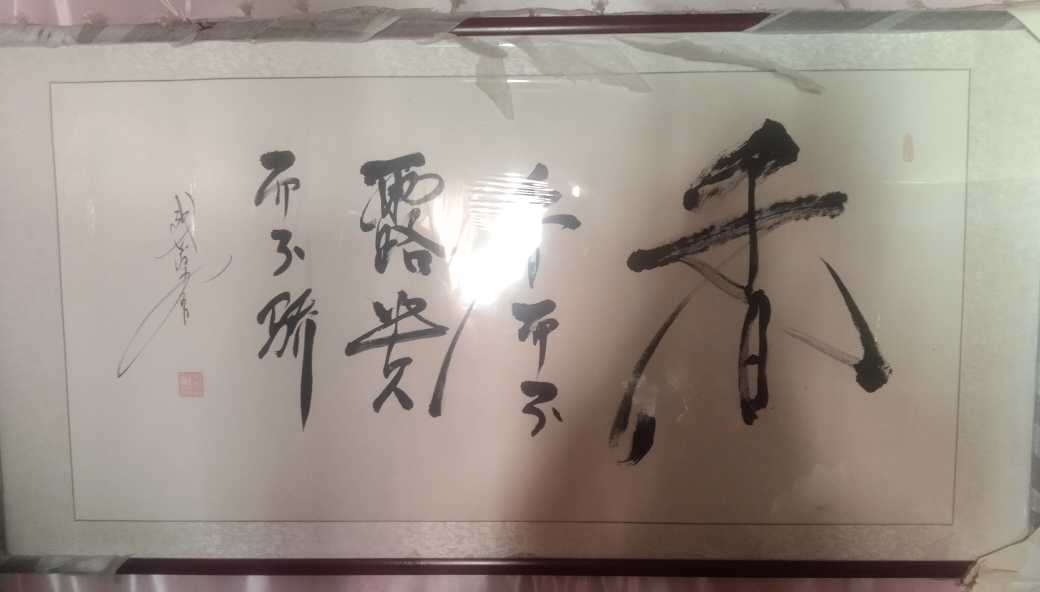 香
香而不
露贵
而不骄